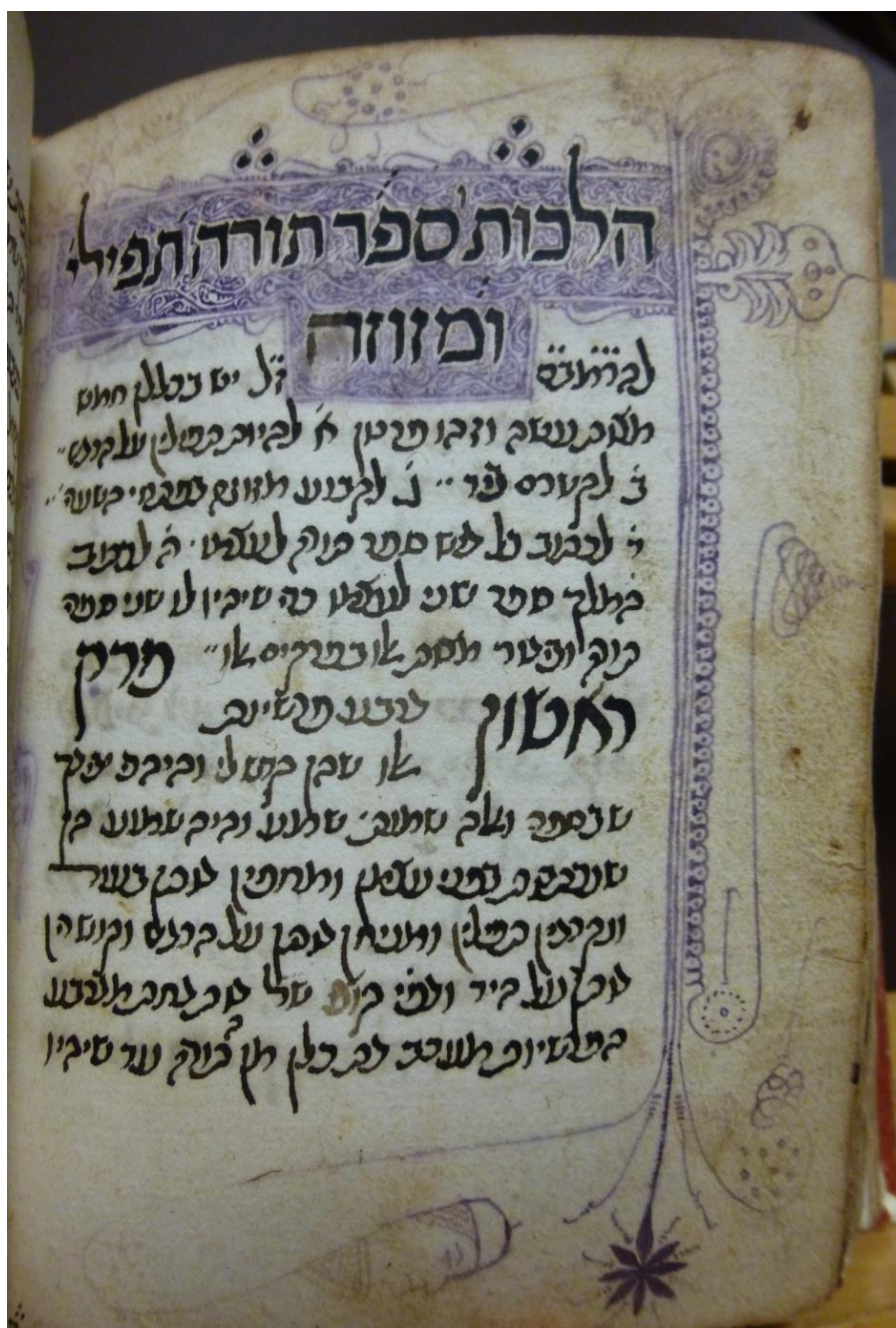 הלכות ספר תורה תפילי
ומזוזה
להרמב״ם ז״ל יש בכללן חמש
מצות עשה וזהו פרטן א׳ להיות תפילין על הראש
ב׳ לקשרם ג׳ לקבוע מזוזה בפתחי השערי׳
ד׳ לכתוב כל איש ספר תורה לעצמו ה׳ לכתוב
המלך ספר שני לעצמו כדי שיהיו לו שני ספרי
תורה וביאור מצות אלו בפרקים אלו פרק
ראשון ארבע פרשיות
אלו שהן קדש לי והיה כי יביאך
שבספר ואלה שמות שמע והיה אם שמוע הן
שנכתבות בפני עצמן ומחפין אותן בעור
ונקראין תפילין ומניחין אותן על הראש וקושרין
אותן על היד ואפי׳ קוצו של אות אחת מארבע
פרשיות מעכב את כולן מן התורה עד שיהיו